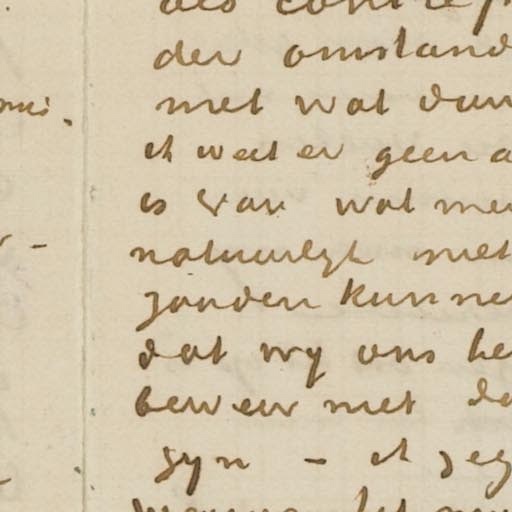 der omstand
met wat dan
ik weet er geen a
is van wat men
natuurlijk met
zouden kunne
dat wy ons he
beweer met da
zyn – ik zeg